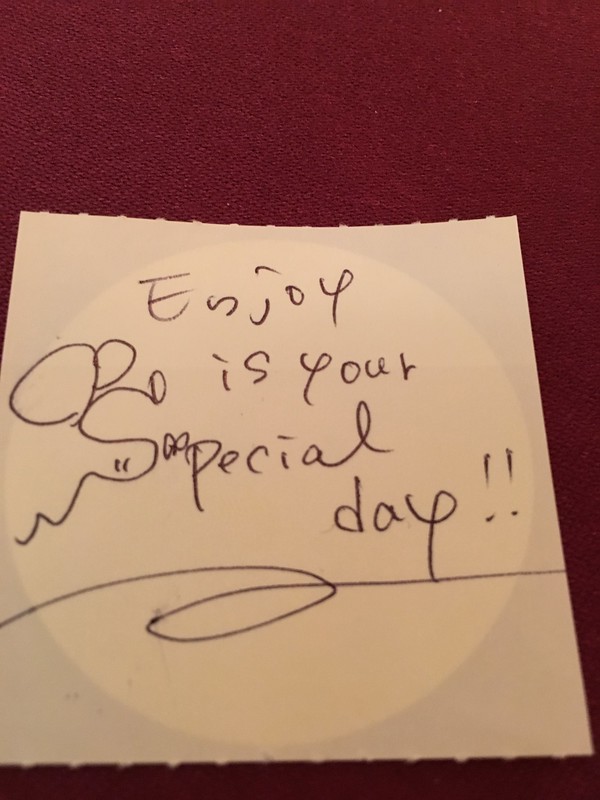 Enjoy
is your
Special
day!!